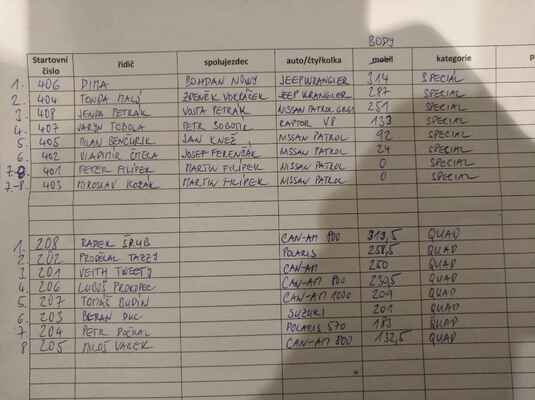 BODY
Startovní číslo řidič spolujezdec auto/čtyřkolka mobil kategorie P
1. 406 DIMA BOHDAN NOWY JEEP WRANGLER 314 SPECIAL
2. 404 TONDA MALÝ ZDENĚK VORÁČEK JEEP WRANGLER 287 SPECIAL
3. 408 JENDA PETRÁK VOJTA PETRÁK NISSAN PATROL 251 SPECIAL
4. 407 TODOLA PETR SOBOTIK RAPTOR V8 133 SPECIAL
5. 405 MILAN BENČURIK JAN KNEŽ NISSAN PATROL 92 SPECIAL
6. 402 VLADIMÍR ČITERA JOSEF FERENČÁK NISSAN PATROL 24 SPECIAL
7-8. 401 PETER FILIPEK MARTIN FILIPEK NISSAN PATROL 0 SPECIAL
7-8. 403 MIROSLAV KOZÁK MARTIN FILIPEK NISSAN PATROL 0 SPECIAL
1. 208 RADEK ŠRUB CAN-AM 800 313,5 QUAD
2 202 TARZY POLARIS 258,5 QUAD
3 201 VEITH TWEETY CAN-AM 250 QUAD
4. 206 LUBOŠ PROKOPEC CAN-AM 800 230,5 QUAD
5. 207 TOMÁŠ BUDÍN CAN-AM 1000 209 QUAD
6. 203 BERAN DUC SUZUKI 201 QUAD
7. 204 PETR POLARIS 570 183 QUAD
8 205 MILOŠ VACEK CAN-AM 800 132,5 QUAD